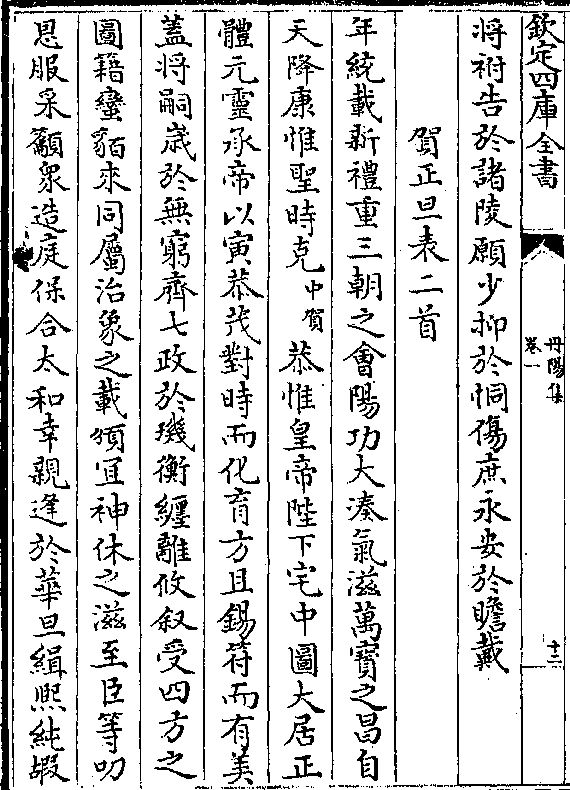 欽定四庫全書
丹陽集
卷一
十二
將祔告於諸陵願少抑於恫傷庶永安於瞻戴
賀正旦表二首
年統載新禮重三朝之會陽功大湊氣滋萬寶之昌自
天降康惟聖時克中賀恭惟皇帝陛下宅中圖大居正
體元靈承帝以寅恭茂對時而化育方且錫符而有羙
蓋將嗣歲於無窮齊七政於璣衡纏離攸叙受四方之
圖籍蠻貊來同屬治象之載頒宜神休之滋至臣等叨
恩服采籲衆造庭保合太和幸親逢於華旦緝熙純嘏